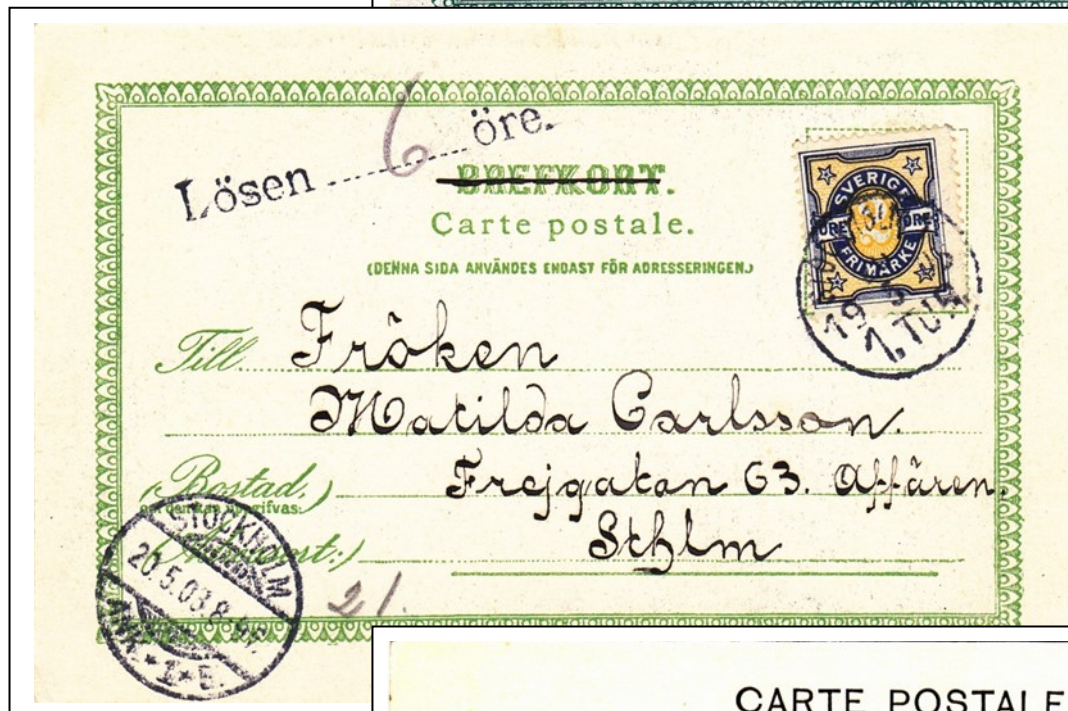 Lösen 6 öre.
BREFKORT.
Carte postale.
(DENNA SIDA ANVÄNDES ENDAST FÖR ADRESSERINGEN.)
SVERIGE
ÖRE ÖRE
FRIMÄRKE
19 5
1. TUR
Till Fröken
Matilda Carlsson.
(Bostad,) Frejgatan 63. Affären.
Sthlm
STOCKHOLM
20.5.03.8
ANK. 1. E.
21.
CARTE POSTALE